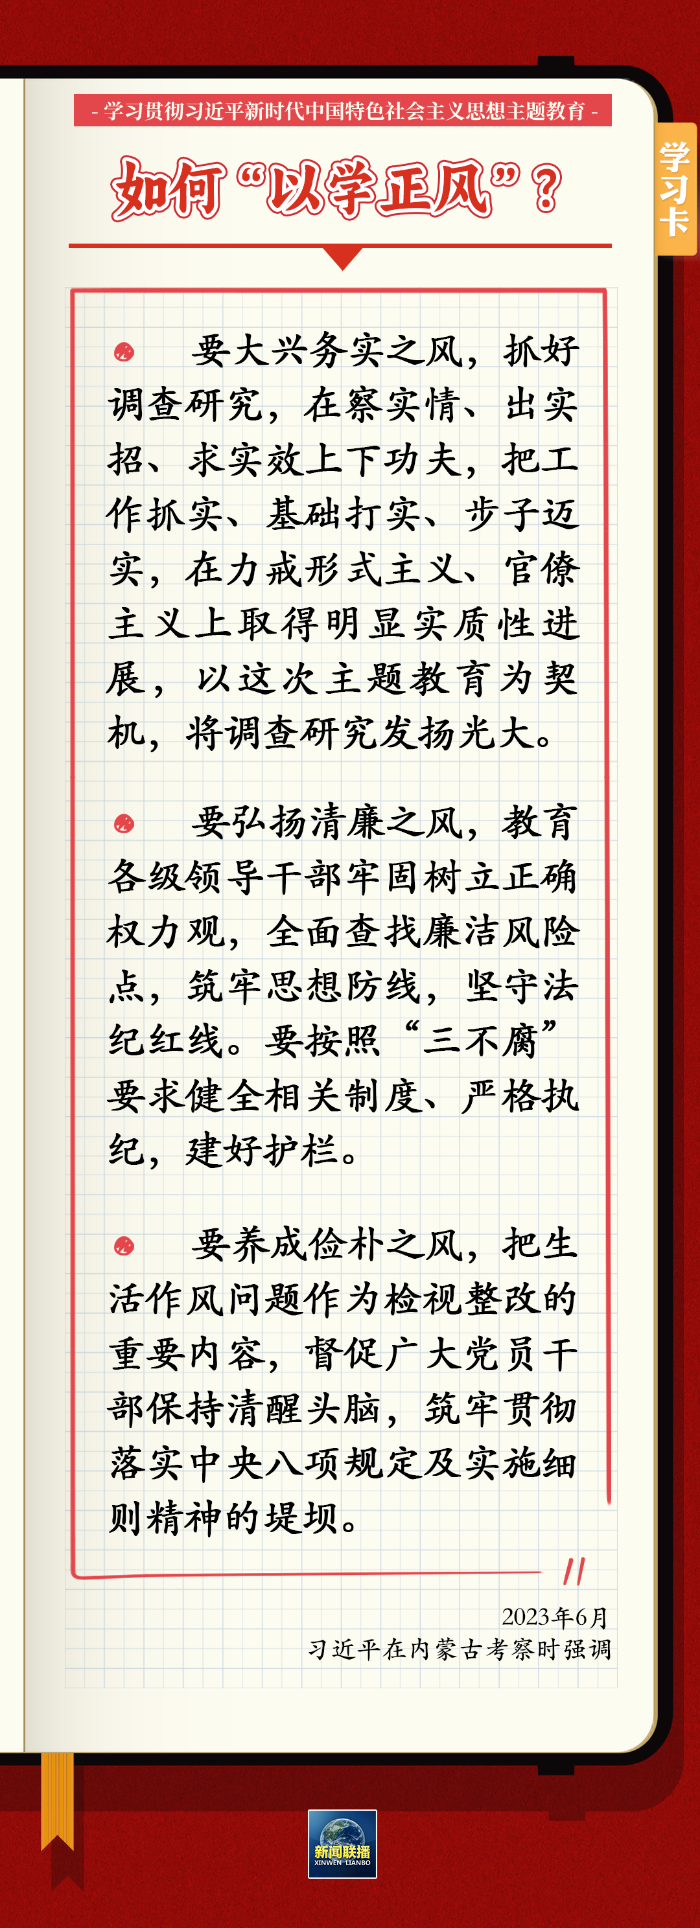 - 学习贯彻习近平新时代中国特色社会主义思想主题教育 -
学习卡
如何“以学正风”？
要大兴务实之风，抓好
调查研究，在察实情、出实
招、求实效上下功夫，把工
作抓实、基础打实、步子迈
实，在力戒形式主义、官僚
主义上取得明显实质性进
展，以这次主题教育为契
机，将调查研究发扬光大。
要弘扬清廉之风，教育
各级领导干部牢固树立正确
权力观，全面查找廉洁风险
点，筑牢思想防线，坚守法
纪红线。要按照“三不腐”
要求健全相关制度、严格执
纪，建好护栏。
要养成俭朴之风，把生
活作风问题作为检视整改的
重要内容，督促广大党员干
部保持清醒头脑，筑牢贯彻
落实中央八项规定及实施细
则精神的堤坝。
2023年6月
习近平在内蒙古考察时强调
新闻联播
XINWEN LIANBO